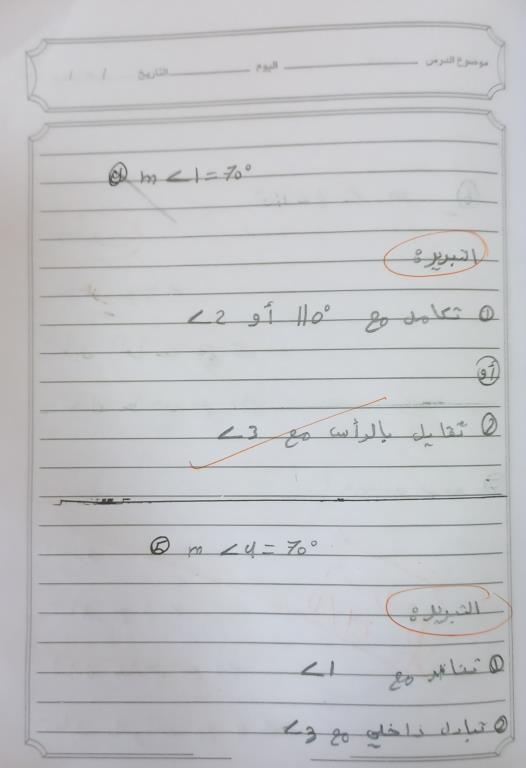 موضوع الدرس ــــــــ اليوم ــــــــ التاريخ / /
④ m ∠1 = 70°
التبرير:
① تكامل مع 110° أو ∠2
أو
② تقابل بالرأس مع ∠3
⑤ m ∠4 = 70°
التبرير:
① تناظر مع ∠1
② تبادل داخلي مع ∠3